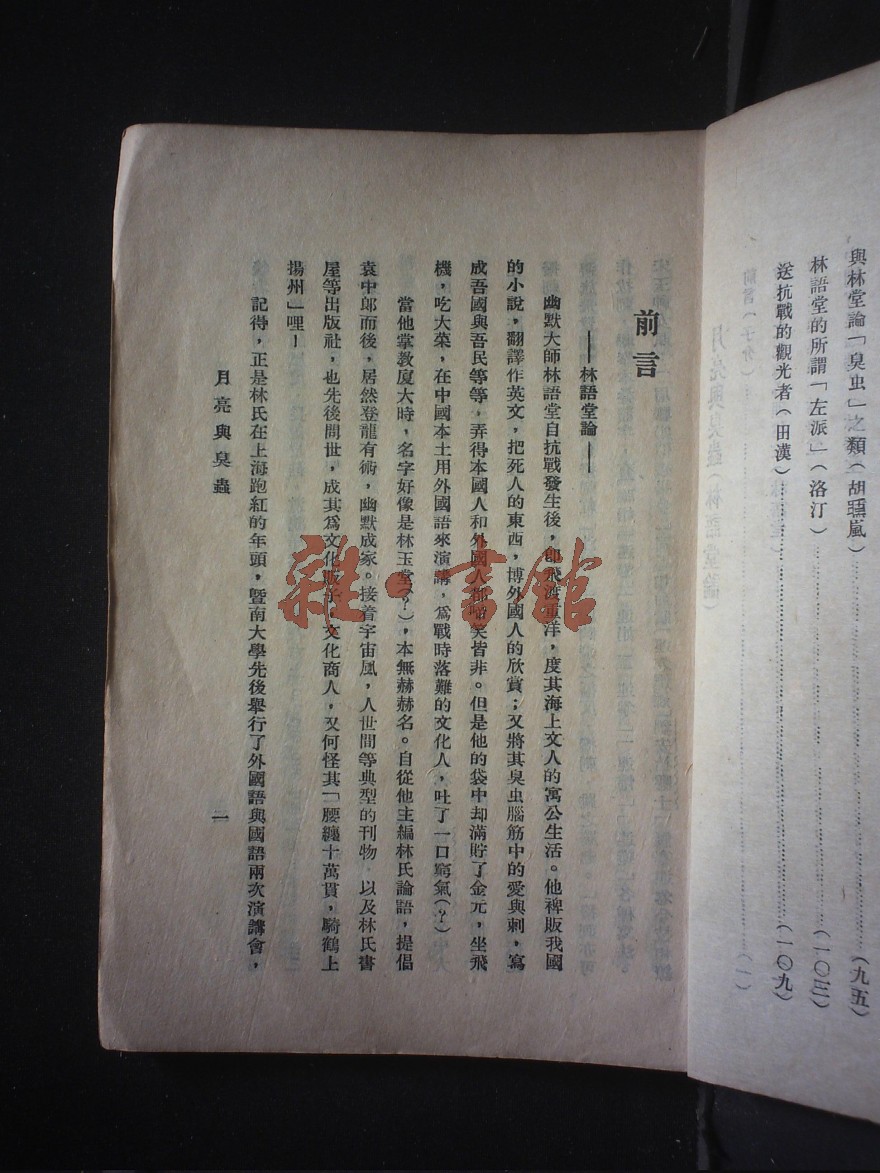 與林堂論「臭虫」之類（胡 嵐）……（九五）
林語堂的所謂「左派」（洛汀）……（一〇三）
送抗戰的觀光者（田漢）……（一〇九）
前言
——林語堂論——
幽默大師林語堂自抗戰發生後，卽飛渡重洋，度其海上文人的寓公生活。他裨販我國
的小說，翻譯作英文，把死人的東西，博外國人的欣賞；又將其臭虫腦筋中的愛與刺，寫
成吾國與吾民等等，弄得本國人和外國人都啼笑皆非。但是他的袋中却滿貯了金元，坐飛
機，吃大菜，在中國本土用外國語來演講，爲戰時落難的文化人，吐了一口窮氣（？）
當他掌教廈大時，名字好像是林玉堂（？），本無赫赫名。自從他主編林氏論語，提倡
袁中郎而後，居然登龍有術，幽默成家。接着宇宙風，人世間等典型的刊物，以及林氏書
屋等出版社，也先後問世，成其爲文化販子，文化商人，又何怪其「腰纏十萬貫，騎鶴上
揚州」哩！
記得，正是林氏在上海跑紅的年頭，暨南大學先後舉行了外國語與國語兩次演講會，
月亮與臭蟲
一
雜·書館